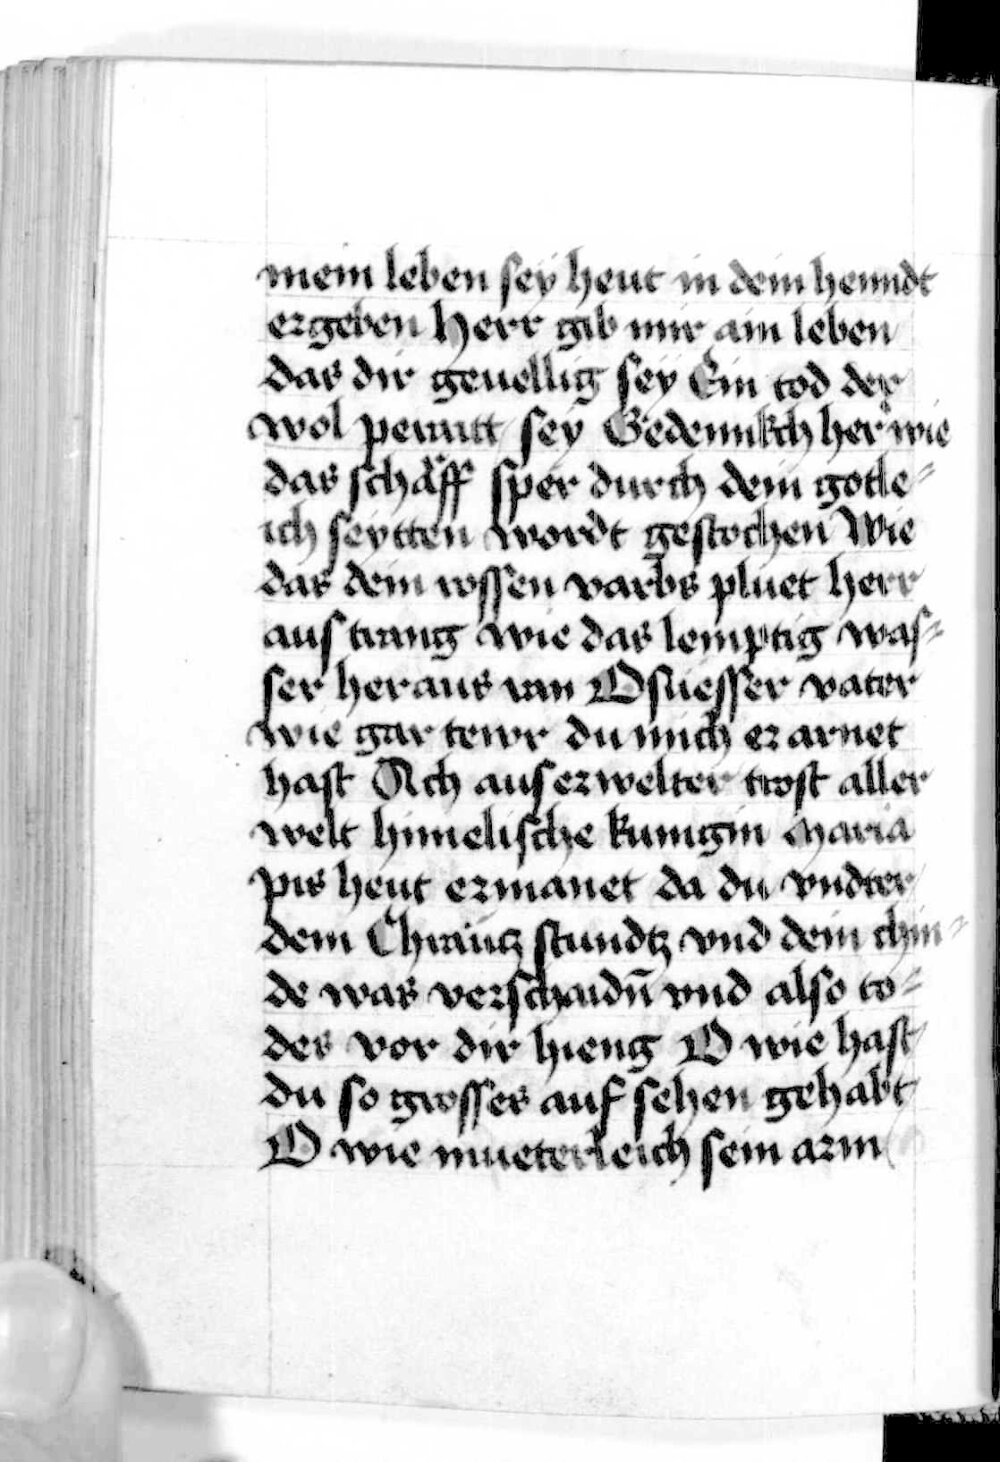 mein leben seÿ heut in dein henndt
ergeben Herr gib mir ain leben
das dir geuellig seÿ Ein tod der
wol penutt seÿ Gedennkch her wie
das schäff sper durch dein gotle-
ich seÿtten wordt gestochen Wie
das dein rossen varbs pluet herr
aus trang wie das lemptig was-
ser heraus ran O süesser vater
wie gar tewr du mich er arnet
hast Ach auserwelter trost aller
welt himelische kunigin maria
pis heut ermanet da du vndter
dem Chräutz stundtz vnd dein chin-
de was verschaidn̄ vnd also to-
der vor dir hieng O wie hast
du so grosses auf sehen gehabt
O wie mueterleich sein arm